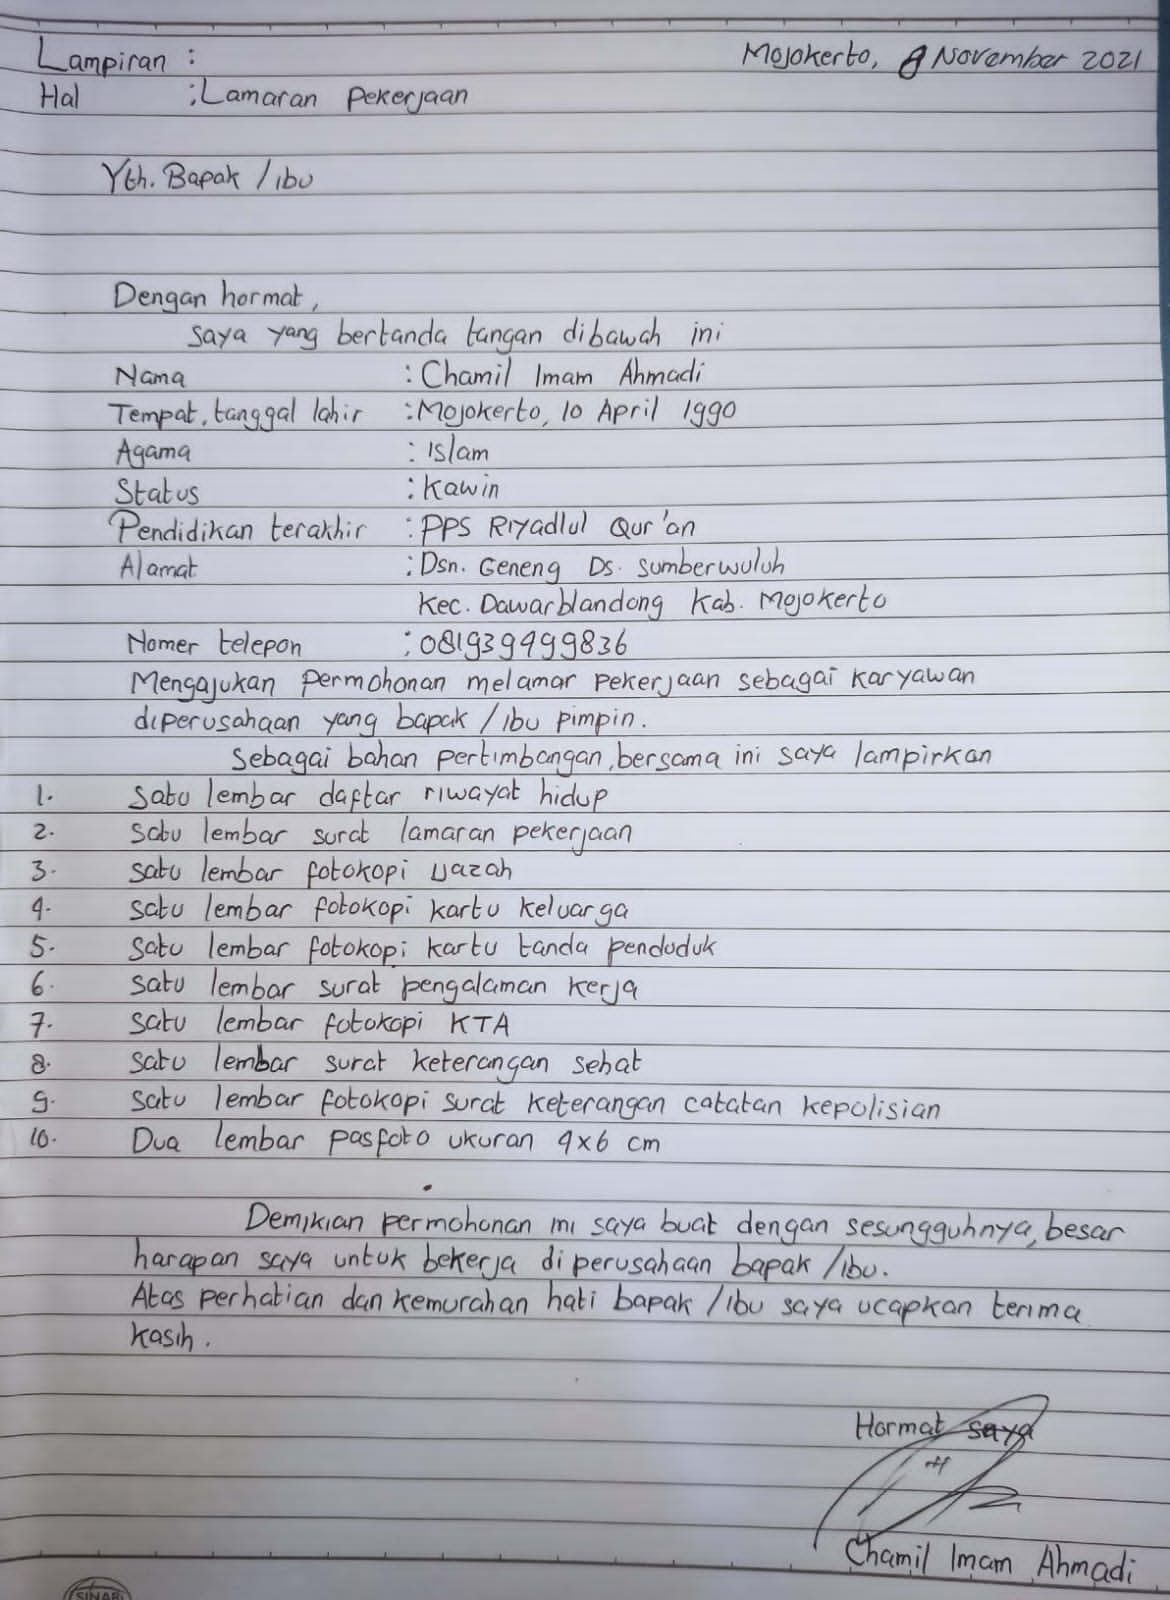 Lampiran :
Mojokerto, 8 November 2021
Hal : Lamaran pekerjaan
Yth. Bapak / ibu
Dengan hormat,
saya yang bertanda tangan dibawah ini
Nama : Chamil Imam Ahmadi
Tempat, tanggal lahir : Mojokerto, 10 April 1990
Agama : Islam
Status : Kawin
Pendidikan terakhir : PPS Riyadlul Qur'an
Alamat : Dsn. Geneng Ds. Sumberwuluh
Kec. Dawarblandong Kab. Mojokerto
Nomer telepon : 081939499836
Mengajukan permohonan melamar pekerjaan sebagai karyawan
diperusahaan yang bapak / ibu pimpin.
Sebagai bahan pertimbangan, bersama ini saya lampirkan
1. Satu lembar daftar riwayat hidup
2. Satu lembar surat lamaran pekerjaan
3. Satu lembar fotokopi ijazah
4. Satu lembar fotokopi kartu keluarga
5. Satu lembar fotokopi kartu tanda penduduk
6. Satu lembar surat pengalaman kerja
7. Satu lembar fotokopi KTA
8. Satu lembar surat keterangan sehat
9. Satu lembar fotokopi surat keterangan catatan kepolisian
10. Dua lembar pasfoto ukuran 4x6 cm
Demikian permohonan ini saya buat dengan sesungguhnya, besar
harapan saya untuk bekerja di perusahaan bapak / ibu.
Atas perhatian dan kemurahan hati bapak / ibu saya ucapkan terima
kasih.
Hormat saya
Chamil Imam Ahmadi